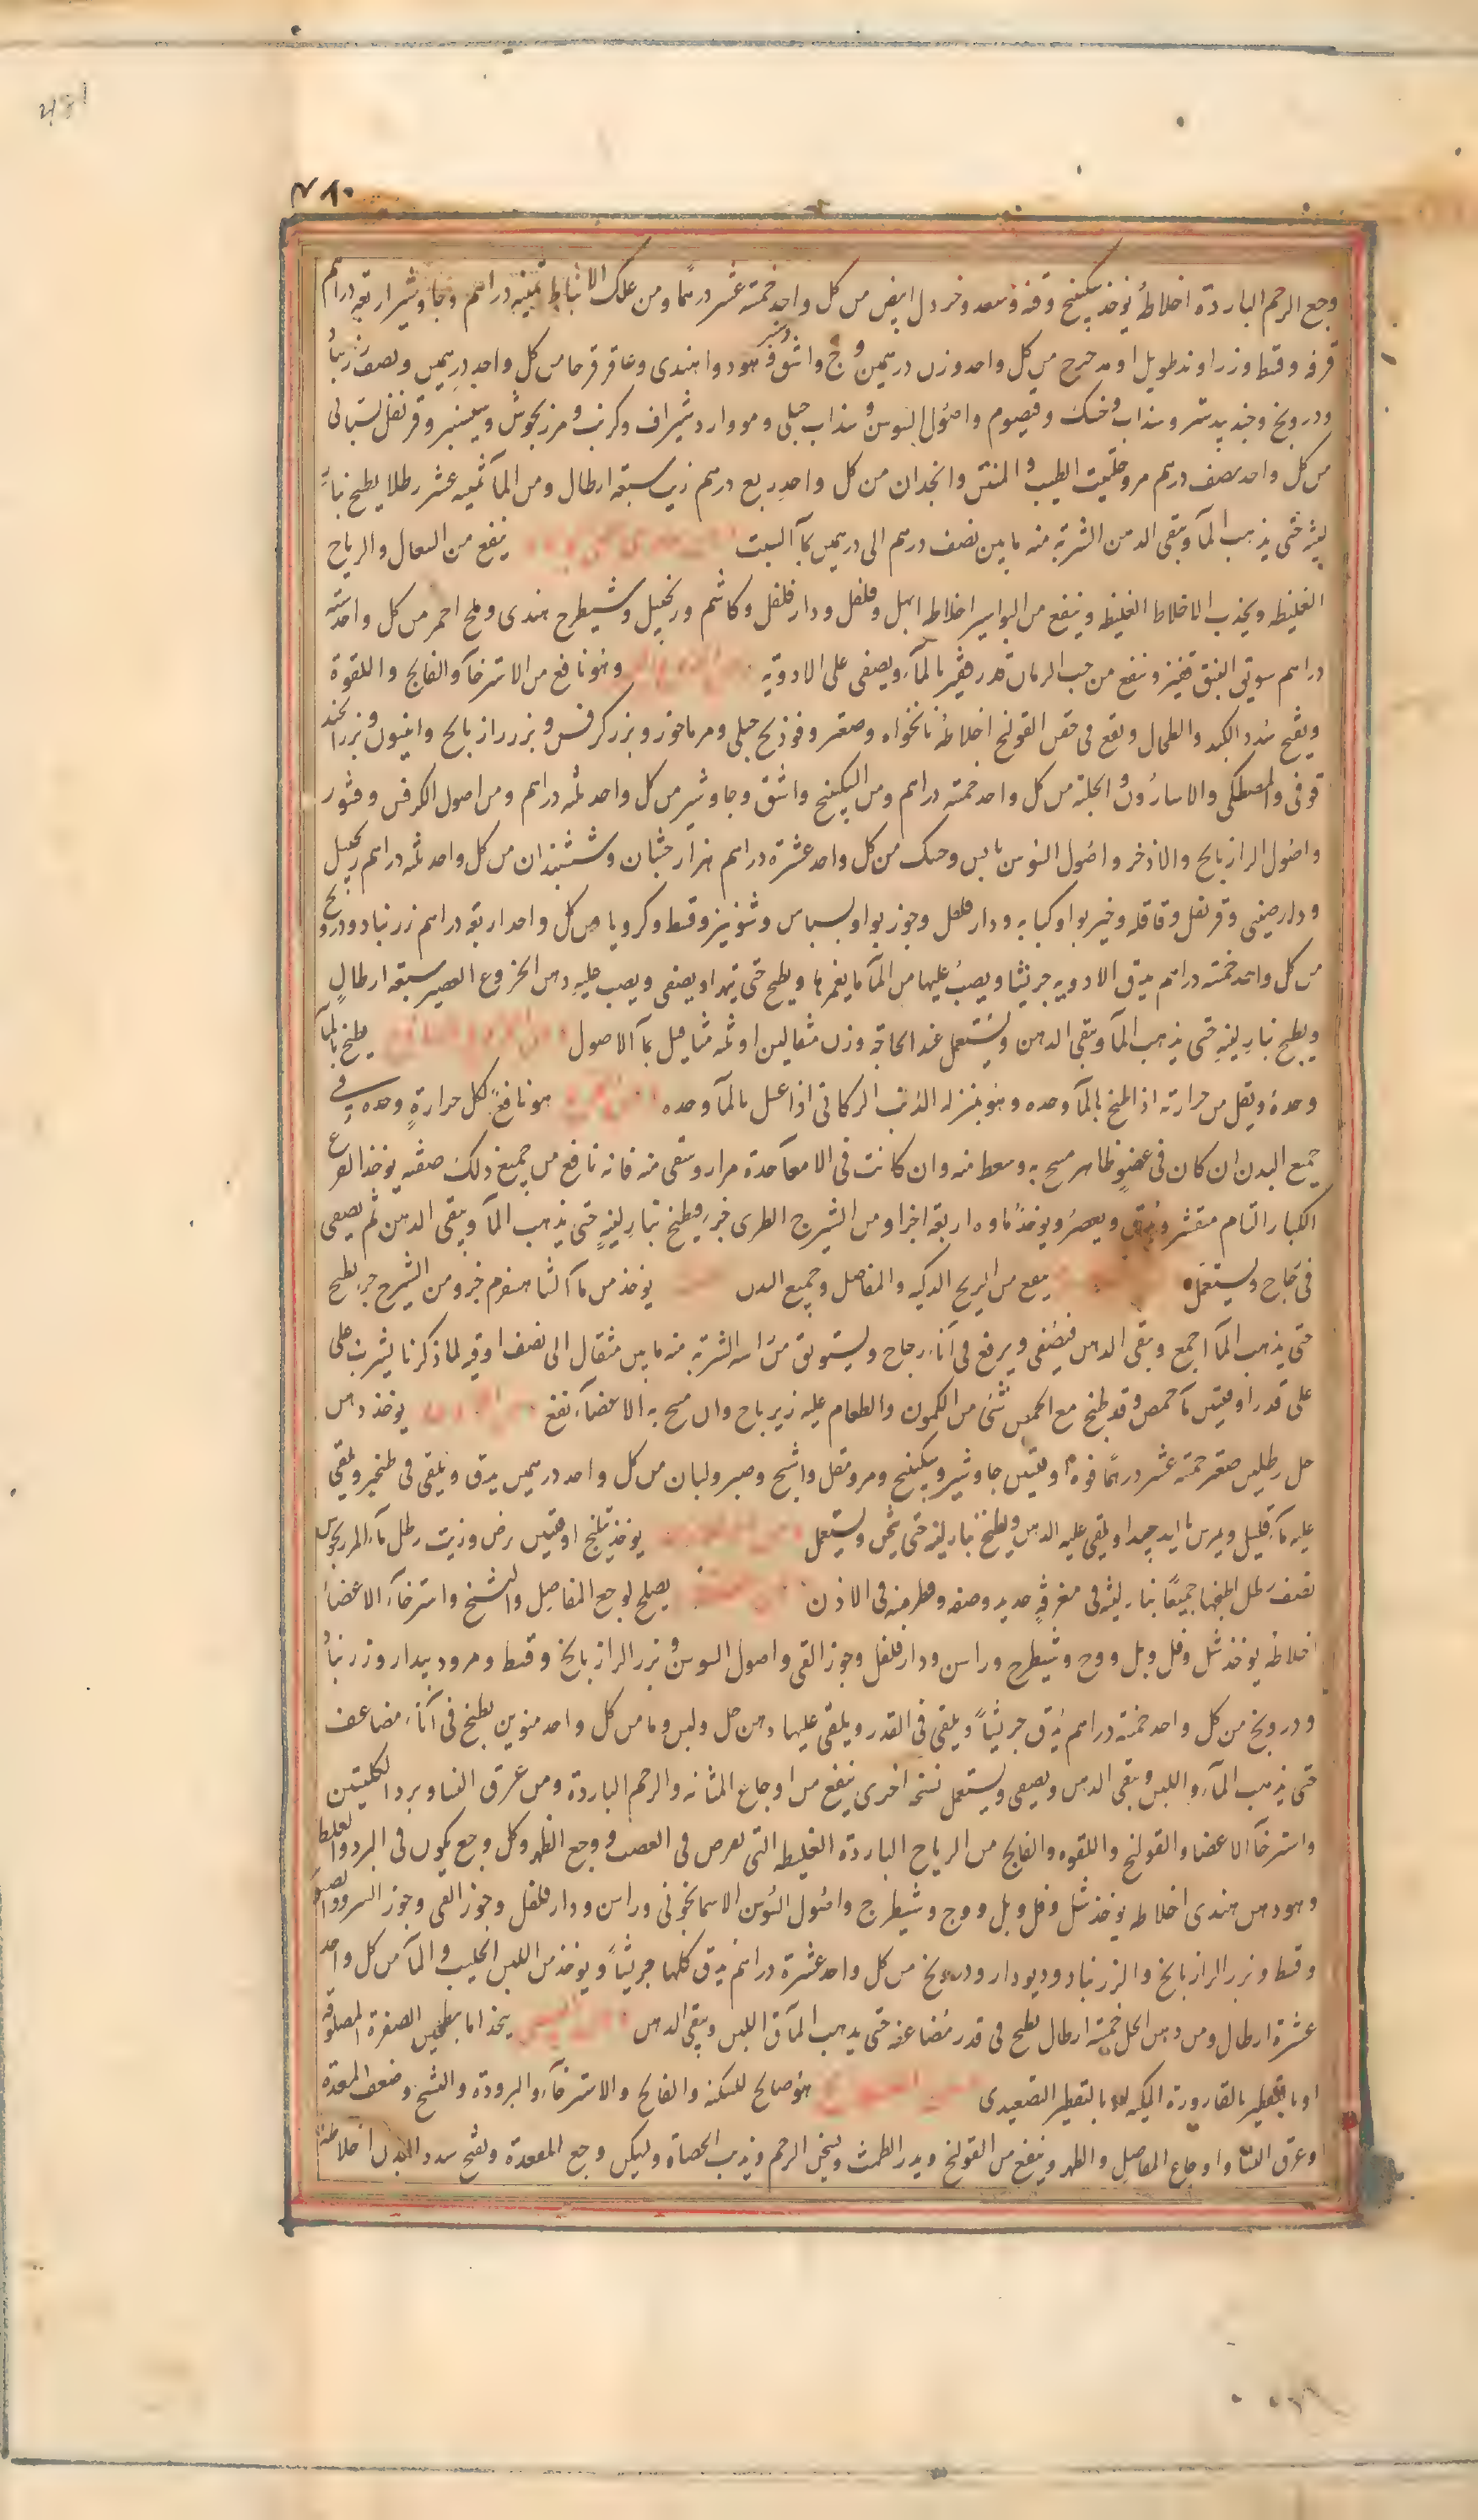 481
٤٨٠
وجع الرحم الباردة اخلاطه يوخذ سكبينج وقنه وسعد وخردل ابيض من كل واحد خمسة عشر درهما ومن علك الانباط ثمنيه دراهم وجاوشير اربعة دراهم
قرفه وقسط وزراوند طويل او مدحرج من كل واحد وزن درهمين وج واشق وهودوا هندى وعاقرقرحا من كل واحد درهمين ونصف زرنباد
ودرونج وجندبيدستر وسذاب وحسك وقيصوم واصول السوس وسذاب جبلى وكرنب ومرزنجوش وسيسنبر وقرنفل بستانى
من كل واحد نصف درهم مر وحلتيت الطيب والمنتن وانجدان من كل واحد ربع درهم زيت سبعة ارطال ومن المآ ثمنيه عشر رطلا يطبخ بنار
لينه حتى يذهب المآ ويبقى الدهن الشربة منه ما بين نصف درهم الى درهمين بمآ السبت ينفع من السعال والرياح
الغليظه ويجذب الاخلاط الغليظه وينفع من البواسير اخلاطه ابهل وفلفل ودارفلفل وكاشم وزنجبيل وشيطرج هندى وملح احمر من كل واحد ستة
دراهم سويق النبق قفيز وينقع من حب الرمان قدر قفيز بالمآء ويصفى على الادويه وهو نافع من الاسترخآ والفالج واللقوة
ويفتح سدد الكبد والطحال ويقع فى حقن القولنج اخلاطه نانخواه وصعتر وفوذنج جبلى ومرماحوز وبزر كرفس وبزر رازيانج وانيسون وبزر
قوفى والمصطكى والاسارون والحلبة من كل واحد خمسة دراهم ومن السكبينج واشق وجاوشير من كل واحد ثلثه دراهم ومن اصول الكرفس وقشور
واصول الرازيانج والاذخر واصول السوس يابس وحسك من كل واحد عشرة دراهم هزارجشان وششبندان من كل واحد ثلثه دراهم زنجبيل
ودارصينى وقرنفل وقاقله وخيربوا وكبابه ودارفلفل وجوزبوا وبسباس وشونيز وقسط وكرويا من كل واحد اربعة دراهم زرنباد ودرونج
من كل واحد خمسة دراهم يدق الادويه جريشا ويصب عليها من المآ ما يغمرها ويطبخ حتى يتهرا ويصفى ويصب عليه دهن الخروع العصير سبعة ارطال
ويطبخ بنار لينه حتى يذهب المآ ويبقى الدهن ويستعمل عند الحاجة وزن مثقالين او ثلثه مثاقيل بمآ الاصول يطبخ بالمآ
وحده ويقل من حرارته اذا طبخ بالمآ وحده وهو بمنزله الزيت الركابى اذا غسل بالمآ وحده هو نافع لكل حرارة وحده فى
جميع البدن ان كان فى عضو ظاهر مسح به وسعط منه وان كانت فى الامعآ حدة مرار وسقى منه فانه نافع من جميع ذلك صفته يوخذ القرع
الكبار التام مقشر ويدق ويعصر ويوخذ ماوه اربعة اجزا ومن الشيرج الطرى جزء فيطبخ بنار لينه حتى يذهب المآ ويبقى الدهن ثم يصفى
فى زجاج ويستعمله ينفع من الريح الدكيه والمفاصل وجميع البدن يوخذ من مآ الشاهسفرم جزو ومن الشيرج جزء يطبخ
حتى يذهب المآ اجمع ويبقى الدهن فيصفى ويرفع فى انآء زجاج ويستوثق من راسه الشربة منه ما بين مثقال الى نصف اوقيه لما ذكرنا يشرب على
على قدر اوقيتين مآ حمص وقد طبخ مع الحمص شئ من الكمون والطعام عليه زيرباج وان مسح به الاعضآء نفع يوخذ دهن
حل رطلين صعتر خمسة عشر درهما فوه اوقيتين جاوشير وسكبينج ومر ومقل واشج وصبر ولبان من كل واحد درهمين يدق ويلقى فى طنجير ويلقى
عليه مآء قليل ويمرس باليد جيدا ويلقى عليه الدهن ويطبخ بنار لينه حتى يثخن ويستعمل يوخذ اوقيتين رض وزيت رطل مآء المرزنجوش
نصف رطل اطبخها جميعا بنار لينه فى مغرفه حديد وصفه وقطر منه فى الاذن يصلح لوجع المفاصل والتشنج واسترخآء الاعضآ
اخلاطه يوخذ شل وفل وبل ووج وشيطرج وراسن ودارفلفل وجوز القى واصول السوس وبزر الرازيانج وقسط ومر وديدار وزرنباد
ودرونج من كل واحد خمسة دراهم يدق جريشا ويلقى فى القدر ويلقى عليها دهن حل ولبن وما من كل واحد منوين يطبخ فى انآء مضاعف
حتى يذهب المآء واللبن ويبقى الدهن ويصفى ويستعمل نسخة اخرى ينفع من اوجاع المثانه والرحم الباردة ومن عرق النسا وبرد الكليتين
واسترخآ الاعضا والقولنج واللقوه والفالج من الرياح الباردة الغليظه التى تعرض فى العصب ووجع الظهر وكل وجع يكون فى البرد والغلظ
وهو دهن هندى اخلاطه يوخذ شل وفل وبل ووج وشيطرج واصول السوسن الاسمانجونى وراسن ودارفلفل وجوز القى وجوز السرو
وقسط وبزر الرازيانج والزرنباد وديودار ودرونج من كل واحد عشرة دراهم يدق كلها جريشا ويوخذ من اللبن الحليب والمآ من كل واحد
عشرة ارطال ومن دهن الحل خمسة ارطال يطبخ فى قدر مضاعفه حتى يذهب المآ واللبن ويبقى الدهن يتخذ اما بطحين الصفرة المصلوقة
او بالتقطير بالقارورة المنكبه او بالتقطير التصعيدى هو صالح للسكته والفالج والاسترخآء والبرودة والتشنج وضعف المعدة
او عرق النسا واوجاع المفاصل والظهر وينفع من القولنج ويدر الطمث ويسخن الرحم ويذيب الحصاة ويسكن وجع المقعدة ويفتح سدد البدن اخلاطه